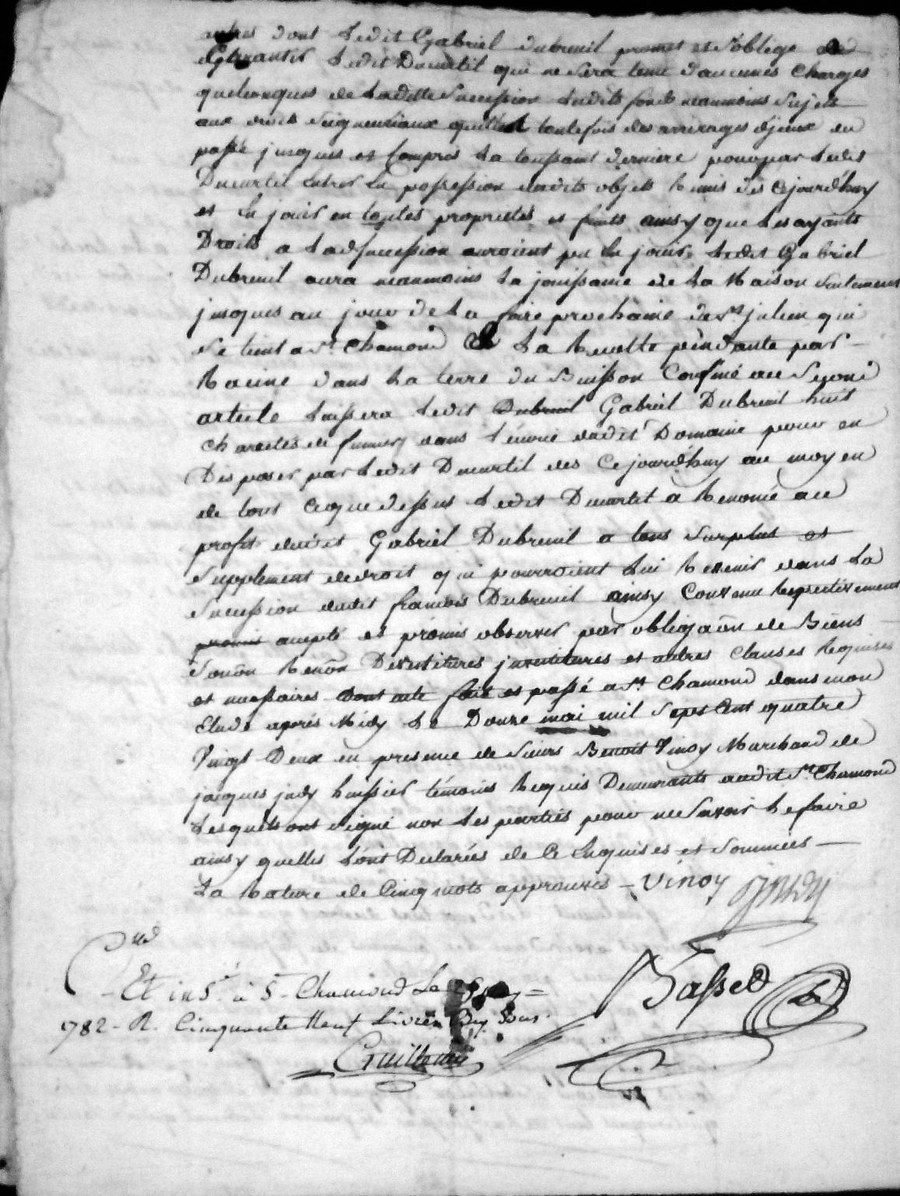 autres dont Ledit Gabriel Dubreuil promet et s'oblige de
Garantir Ledit Ducurtil qui ne sera tenu d'aucunes Charges
quelconques de Ladite Succession Lesdits fonds neanmoins Sujets
aux droits Seigneuriaux quittes toutefois des arrérages d'iceux du
passé jusques et Compris La toussaint derniere pour par Ledit
Ducurtil Entrer En possession desdits objets Remis dès Cejourd'huy
et En jouir en toutes proprietés et fruits ainsy que Les ayants
Droits a Ladsuccession auroient pu En jouir, Ledit Gabriel
Dubreuil aura neanmoins La jouissance de La Maison Seulement
jusques au jour de La foire prochaine de st julien qui
se tient a st Chamond & La Recolte pendante par
Racine dans La terre du Buisson Confiné au Second
article Laissera Ledit Dubreuil Gabriel Dubreuil huit
Charetées de fumier dans L'écurie dudit Domaine pour en
Disposer par Ledit Ducurtil dès Cejourd'huy au moyen
de tout Ceque dessus Ledit Ducurtil a Renoncé au
profit dudit Gabriel Dubreuil a tous Surplus et
Supplement de droit qui pourroient Lui Revenir dans La
Succession dudit françois Dubreuil ainsy Convenu Respectivement
promis accepté et promis observer par obligaôn de Biens
Renôn Devetitures investitures et autres Clauses Requises
et necessaires dont acte fait et passé a st Chamond dans mon
Etude après Midy Le Douze mai mil Sept Cent quatre
Vingt Deux en presence de sieurs Benoit Vinoy Marchand de
jacques judy huissier témoins Requis Demeurants audit st Chamond
Lesquels ont signé non Les parties pour ne Savoir Le faire
ainsy quelles L'ont Declarés de Ce Enquises et Sommées
La Rature de Cinq mots approuvés - Vinoy
Et insé. à St Chamond Le
1782 - R. Cinquante Neuf Livres Sous
Basset